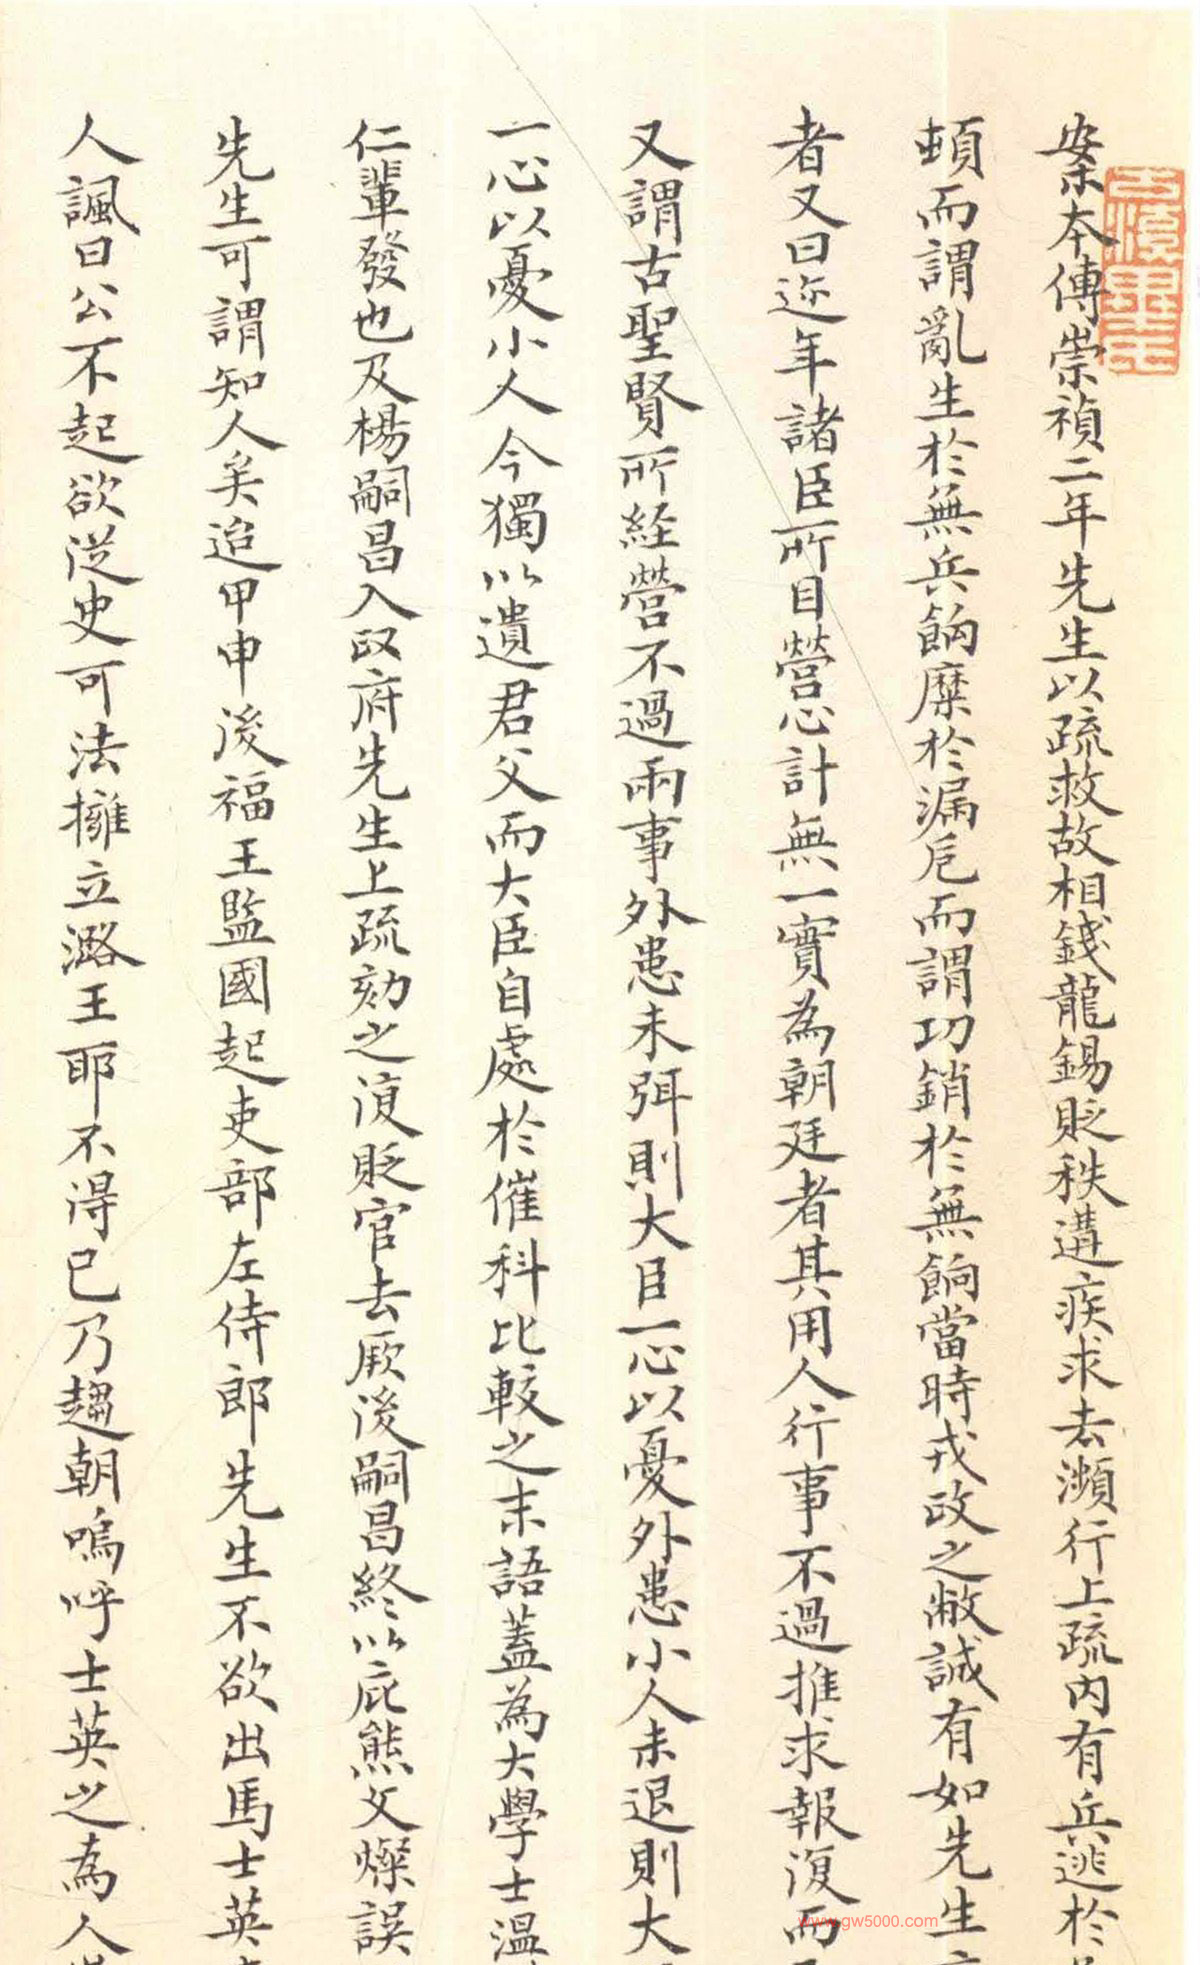 案本傳崇禎二年先生以疏救故相錢龍錫貶秩遘疾求去瀕行上疏內有兵逃於
頓而謂亂生於無兵餉糜於漏卮而謂功銷於無餉當時戎政之敝誠有如先生
者又曰迩年諸臣所目營心計無一實為朝廷者其用人行事不過推求報復而
又謂古聖賢所經營不過兩事外患未弭則大臣一心以憂外患小人未退則大
一心以憂小人今獨以遺君父而大臣自處於催科比較之末語蓋為大學士溫
仁輩發也及楊嗣昌入政府先生上疏劾之復貶官去厥後嗣昌終以庇熊文燦誤
先生可謂知人矣迨甲申後福王監國起吏部左侍郎先生不欲出馬士英
人諷曰公不起欲從史可法擁立潞王耶不得已乃趨朝嗚呼士英之為人
www.gw5000.com